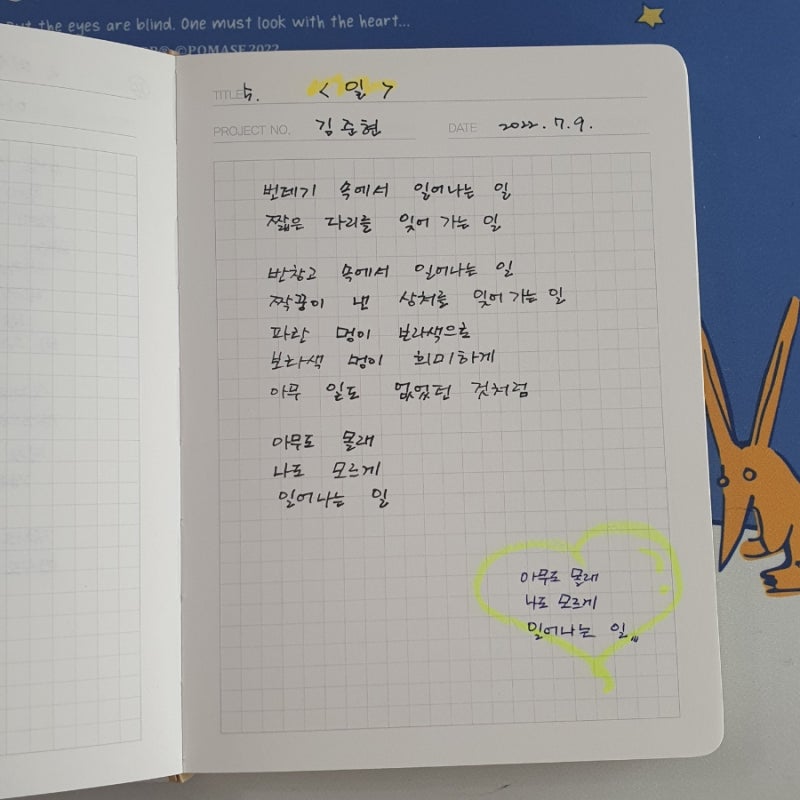 But the eyes are blind. One must look with the heart...
®©POMASE2022
TITLE 5. <일>
PROJECT NO. 김준현 DATE 2022.7.9.
번데기 속에서 일어나는 일
짧은 다리를 잊어 가는 일
반창고 속에서 일어나는 일
짝꿍이 낸 상처를 잊어 가는 일
파란 멍이 보라색으로
보라색 멍이 희미하게
아무 일도 없었던 것처럼
아무도 몰래
나도 모르게
일어나는 일
아무도 몰래
나도 모르게
일어나는 일